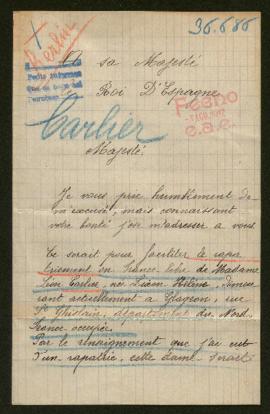 36.686
Berlin
A sa Majesté
Roi D'Espagne
Pedir informes
Carlier
Fecho
c.a.c.
Majesté.
Je vous prie humblement de
m'excuser, mais connaissant
votre bonté j'ose m'adresser a vous
Ce serait pour faciliter le rapa
triement en France libre de Madame
Léon Carlier, née Hélène, demeu
rant actuellement a rue
St Ghislain, département du Nord,
France occupée.
Par le renseignement que j'ai eut
d'un rapatrié, cette Dame serait